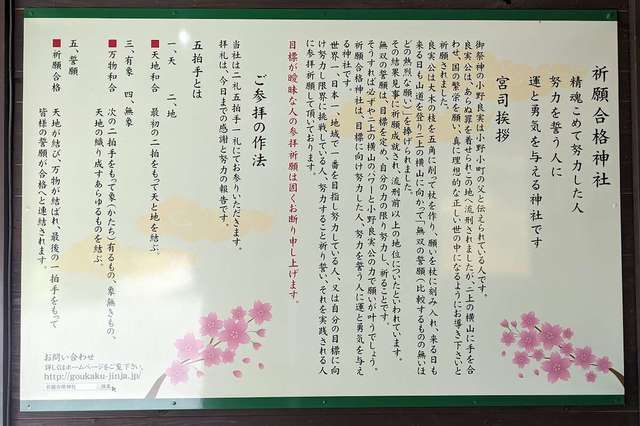 祈願合格神社
精魂こめて努力した人
努力を誓う人に
運と勇気を与える神社です
宮司挨拶
御祭神の小野良実は小野小町の父と伝えられている人です。
良実公は、あらぬ罪を着せられこの地へ流刑されましたが、二上の横山に手を合
わせ、国の繁栄を願い、真に理想的な正しい世の中になるようにお導き下さいと
祈願されました。
良実公は大木の枝を五角に削て杖を作り、願いを杖に刻み入れ、来る日も
来る日も山道を登り、二上の横山に向かって「無双の誓願」(比較するものの無いほ
どの熱烈な願い)を捧げられました。
その結果見事に祈願成就され、流刑前以上の地位についたといわれています。
無双の誓願は、目標を定め、自分の力の限り努力し、祈ることです。
そうすれば必ずや二上の横山のパワーと小野良実公の力で願いが叶うでしょう。
祈願合格神社は、目標に向け努力した人、努力を誓う人に運と勇気を与え
る神社です。
世界一、日本一、地域で一番を目指し努力している人、又は自分の目標に向
け努力し限界に挑戦している人、努力すること祈り誓い、それを実践される人
に参拝祈願して頂いております。
目標が曖昧な人の参拝祈願は固くお断り申し上げます。
ご参拝の作法
当社は二礼五拍手一礼にてお参りいただきます。
拝礼は、今日までの感謝と努力の報告です。
五拍手とは
一、天 二、地
■天地和合 最初の二拍をもって天と地を結ぶ。
三、有象 四、無象
■万物和合 次の二拍手をもって象(かたち)有るもの、象無きもの、
天地の織り成すあらゆるものを結ぶ。
五、誓願
■祈願合格 天地が結び、万物が結ばれ、最後の一拍手をもって
皆様の誓願が合格へと連結されます。
お問い合わせ
詳しくはホームページをご覧下さい。
http://goukaku-jinja.jp/
祈願合格神社 検索